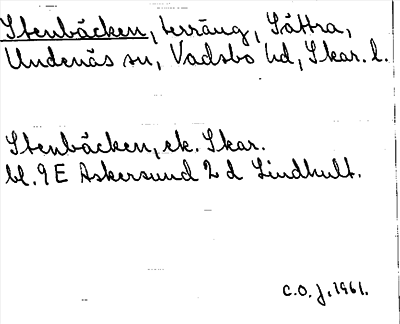 Stenbäcken, terräng, Sättra,
Undenäs sn, Vadsbo hd, Skar. l.
Stenbäcken, ek. Skar.
bl. 9 E Askersund 2 d Lindhult.
C.O.J. 1961.